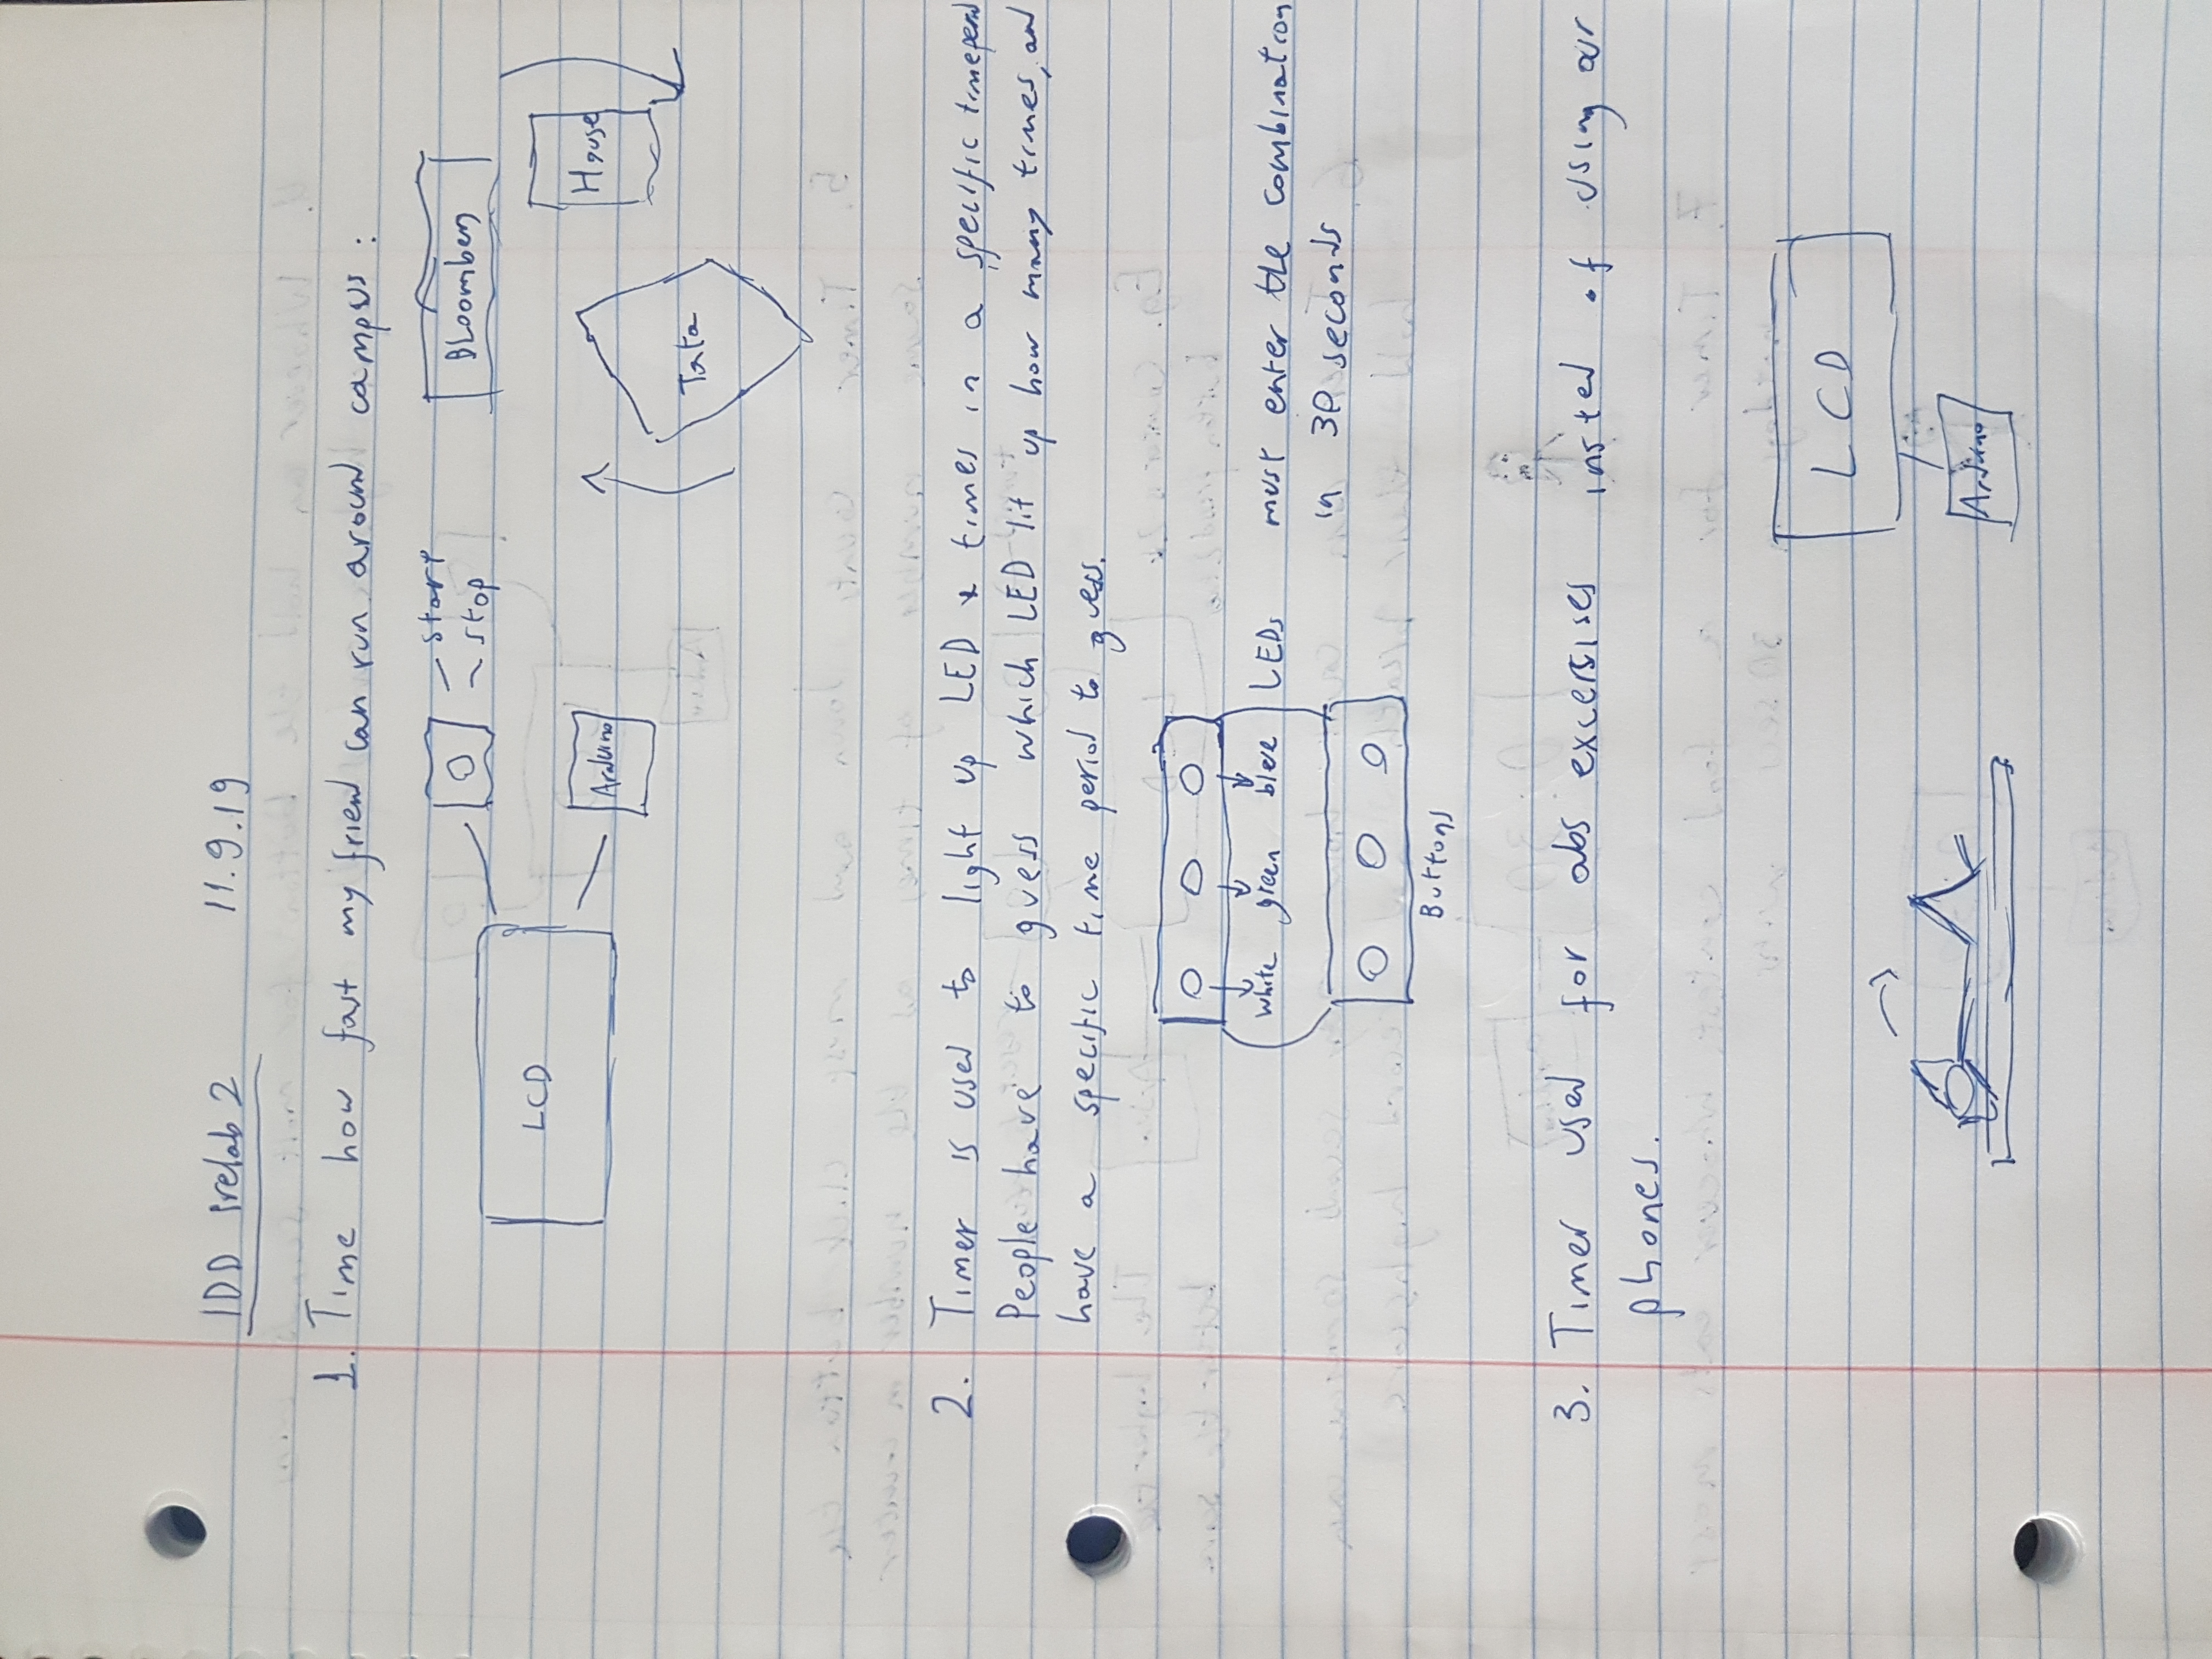 IDD Prelab 2 11.9.19
1. Time how fast my friend can run around campus :
start
stop
LCD
Arduino
Bloomberg
House
Tata
2. Timer is used to light up LED x times in a specific timeperiod
People have to guess which LED lit up how many times, and
have a specific time period to guess.
white green blue LEDs
must enter the combination
in 30 seconds
Buttons
3. Timer used for abs excersises insted of using our
phones.
LCD
Arduino